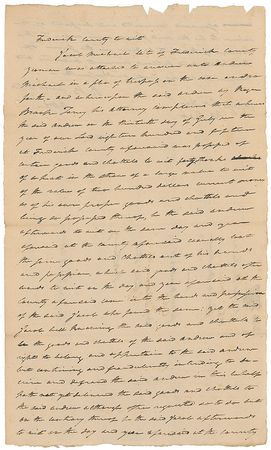 Frederick County to wit
Jacob Michael late of Frederick County
yeoman was attached to answer unto Andrew
Michael in a plea of trespass on the case and so
forth and whereupon the said Andrew by Roger
Brooke Taney his attorney complains that whereas
the said Andrew on the day of July in the
year of our Lord eighteen hundred and
at Frederick County aforesaid was possessed of
certain goods and chattels to wit
of wheat in the straw of a large value to wit
of the value of two hundred dollars current money
as of his own proper goods and chattels and
being so possessed thereof, he the said Andrew
afterwards to wit on the same day and year
aforesaid at the County aforesaid casually lost
the same goods and chattels out of his hands
and possession, which said goods and chattels after
wards to wit on the day and year aforesaid at the
County aforesaid came into the hands and possession
of the said Jacob who found the same; Yet the said
Jacob well knowing the said goods and chattels to
be the goods and chattels of the said Andrew and of
right to belong and appertain to the said Andrew
but contriving and fraudulently intending to de-
ceive and defraud the said Andrew in this behalf
hath not yet delivered the said goods and chattels to
the said Andrew although often requested so to do but
on the contrary thereof he the said Jacob afterwards
to wit on the day and year aforesaid at the County